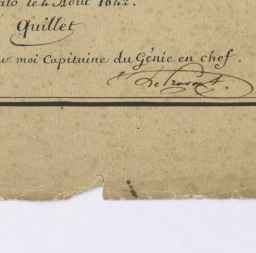 le 4 Août 1842.
Quillet
moi Capitaine du Génie en chef.